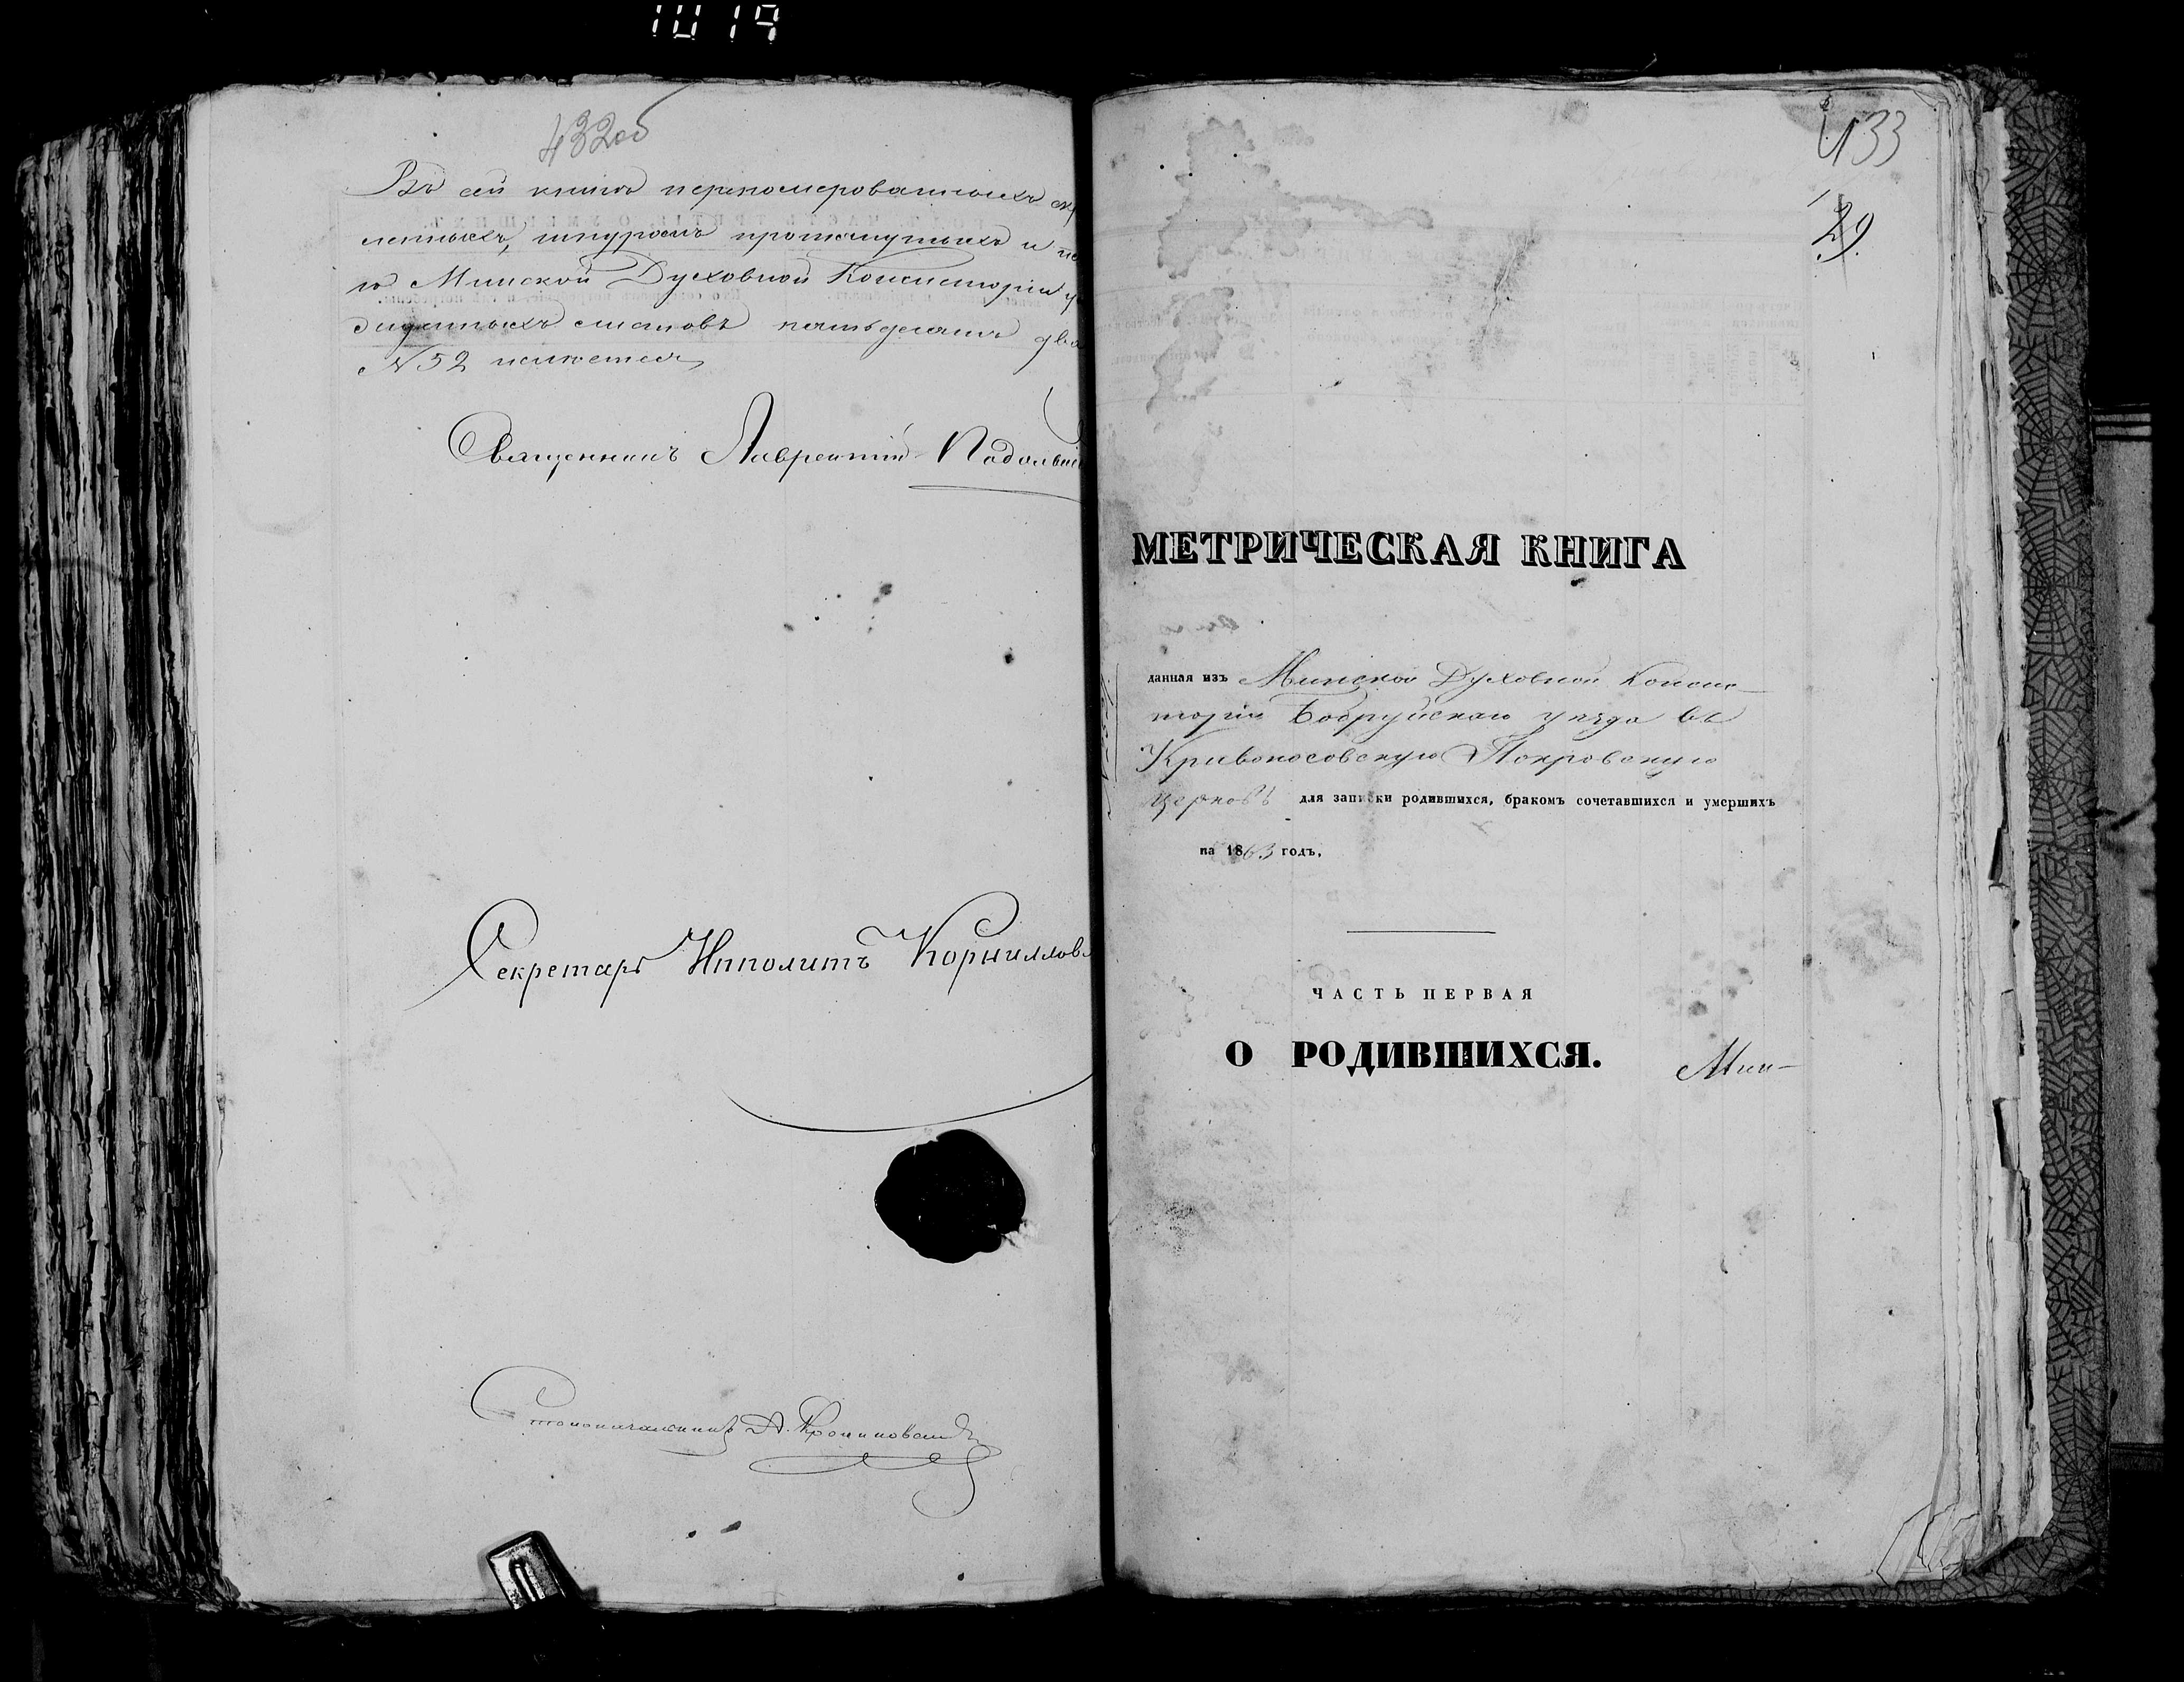 1019
432об
Въ сей книгѣ переномерованныхъ скр
ленныхъ, шнуромъ протянутыхъ и
ю Минской Духовной Консисторіи у
листовъ пятьдесятъ два
N 52 печатью
Священникъ Лаврентій
Секретарь Ипполитъ Корниллов
Столоначальникъ А.
433
29.
МЕТРИЧЕСКАЯ КНИГА
данная изъ Минской Духовной Консис-
торіи Бобруйскаго уѣзда въ
Кривоносовскую Покровскую
церковь для записки родившихся, бракомъ сочетавшихся и умершихъ
на 1863 годъ,
ЧАСТЬ ПЕРВАЯ
О РОДИВШИХСЯ.
Мин-